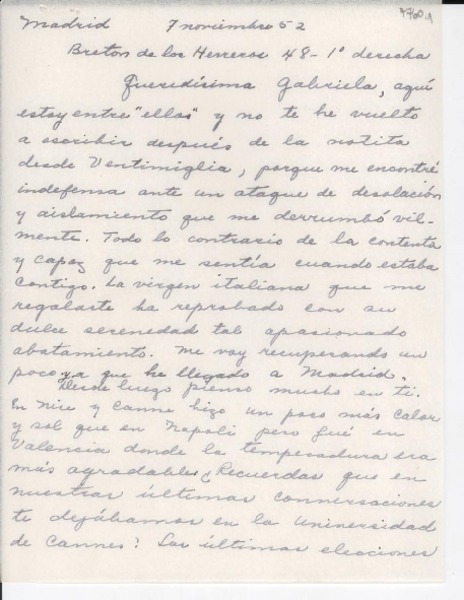 4760.1
Madrid 7 noviembre 52
Breton de los Herreros 48-1º derecha
Queridísima Gabriela, aquí
estoy entre "ellas" y no te he vuelto
a escribir después de la notita
desde Ventimiglia, porque me encontré
indefensa ante un ataque de desolación
y aislamiento que me derrumbó vil-
mente. Todo lo contrario de la contenta
y capaz que me sentía cuando estaba
contigo. La virgen italiana que me
regalaste ha reprobado con su
dulce serenidad tal apasionado
abatimiento. Me voy recuperando un
poco ya que he llegado a Madrid.
Desde luego pienso mucho en ti.
En Nice y Canne hizo un poco más calor
y sol que en Napoli pero fué en
Valencia donde la temperadura era
más agradable. ¿Recuerdas que en
nuestras últimas connversaciones
te dejábamos en la Uninersidad
de Cannes? Las últimas elecciones